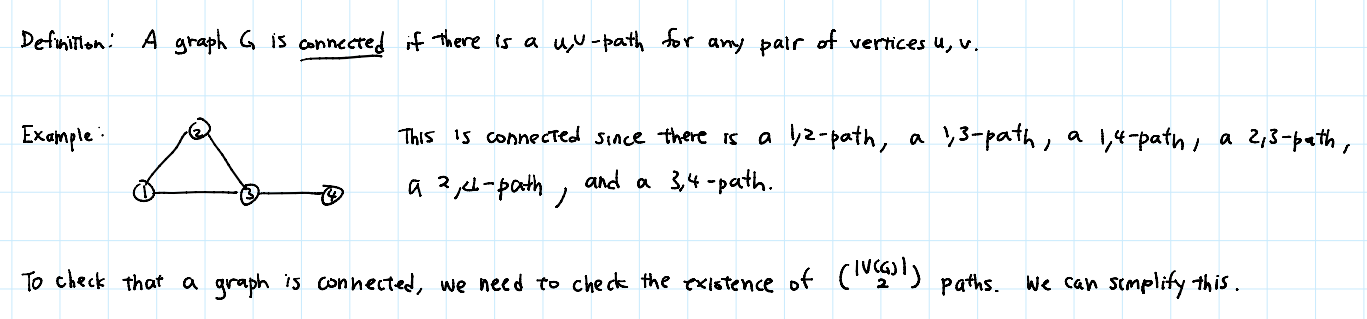 Definition: A graph G is connected if there is a u,v-path for any pair of vertices u, v.
Example: This is connected since there is a 1,2-path, a 1,3-path, a 1,4-path, a 2,3-path,
2
1 3 4
a 2,4-path, and a 3,4-path.
To check that a graph is connected, we need to check the existence of (|V(G)| 2) paths. We can simplify this.